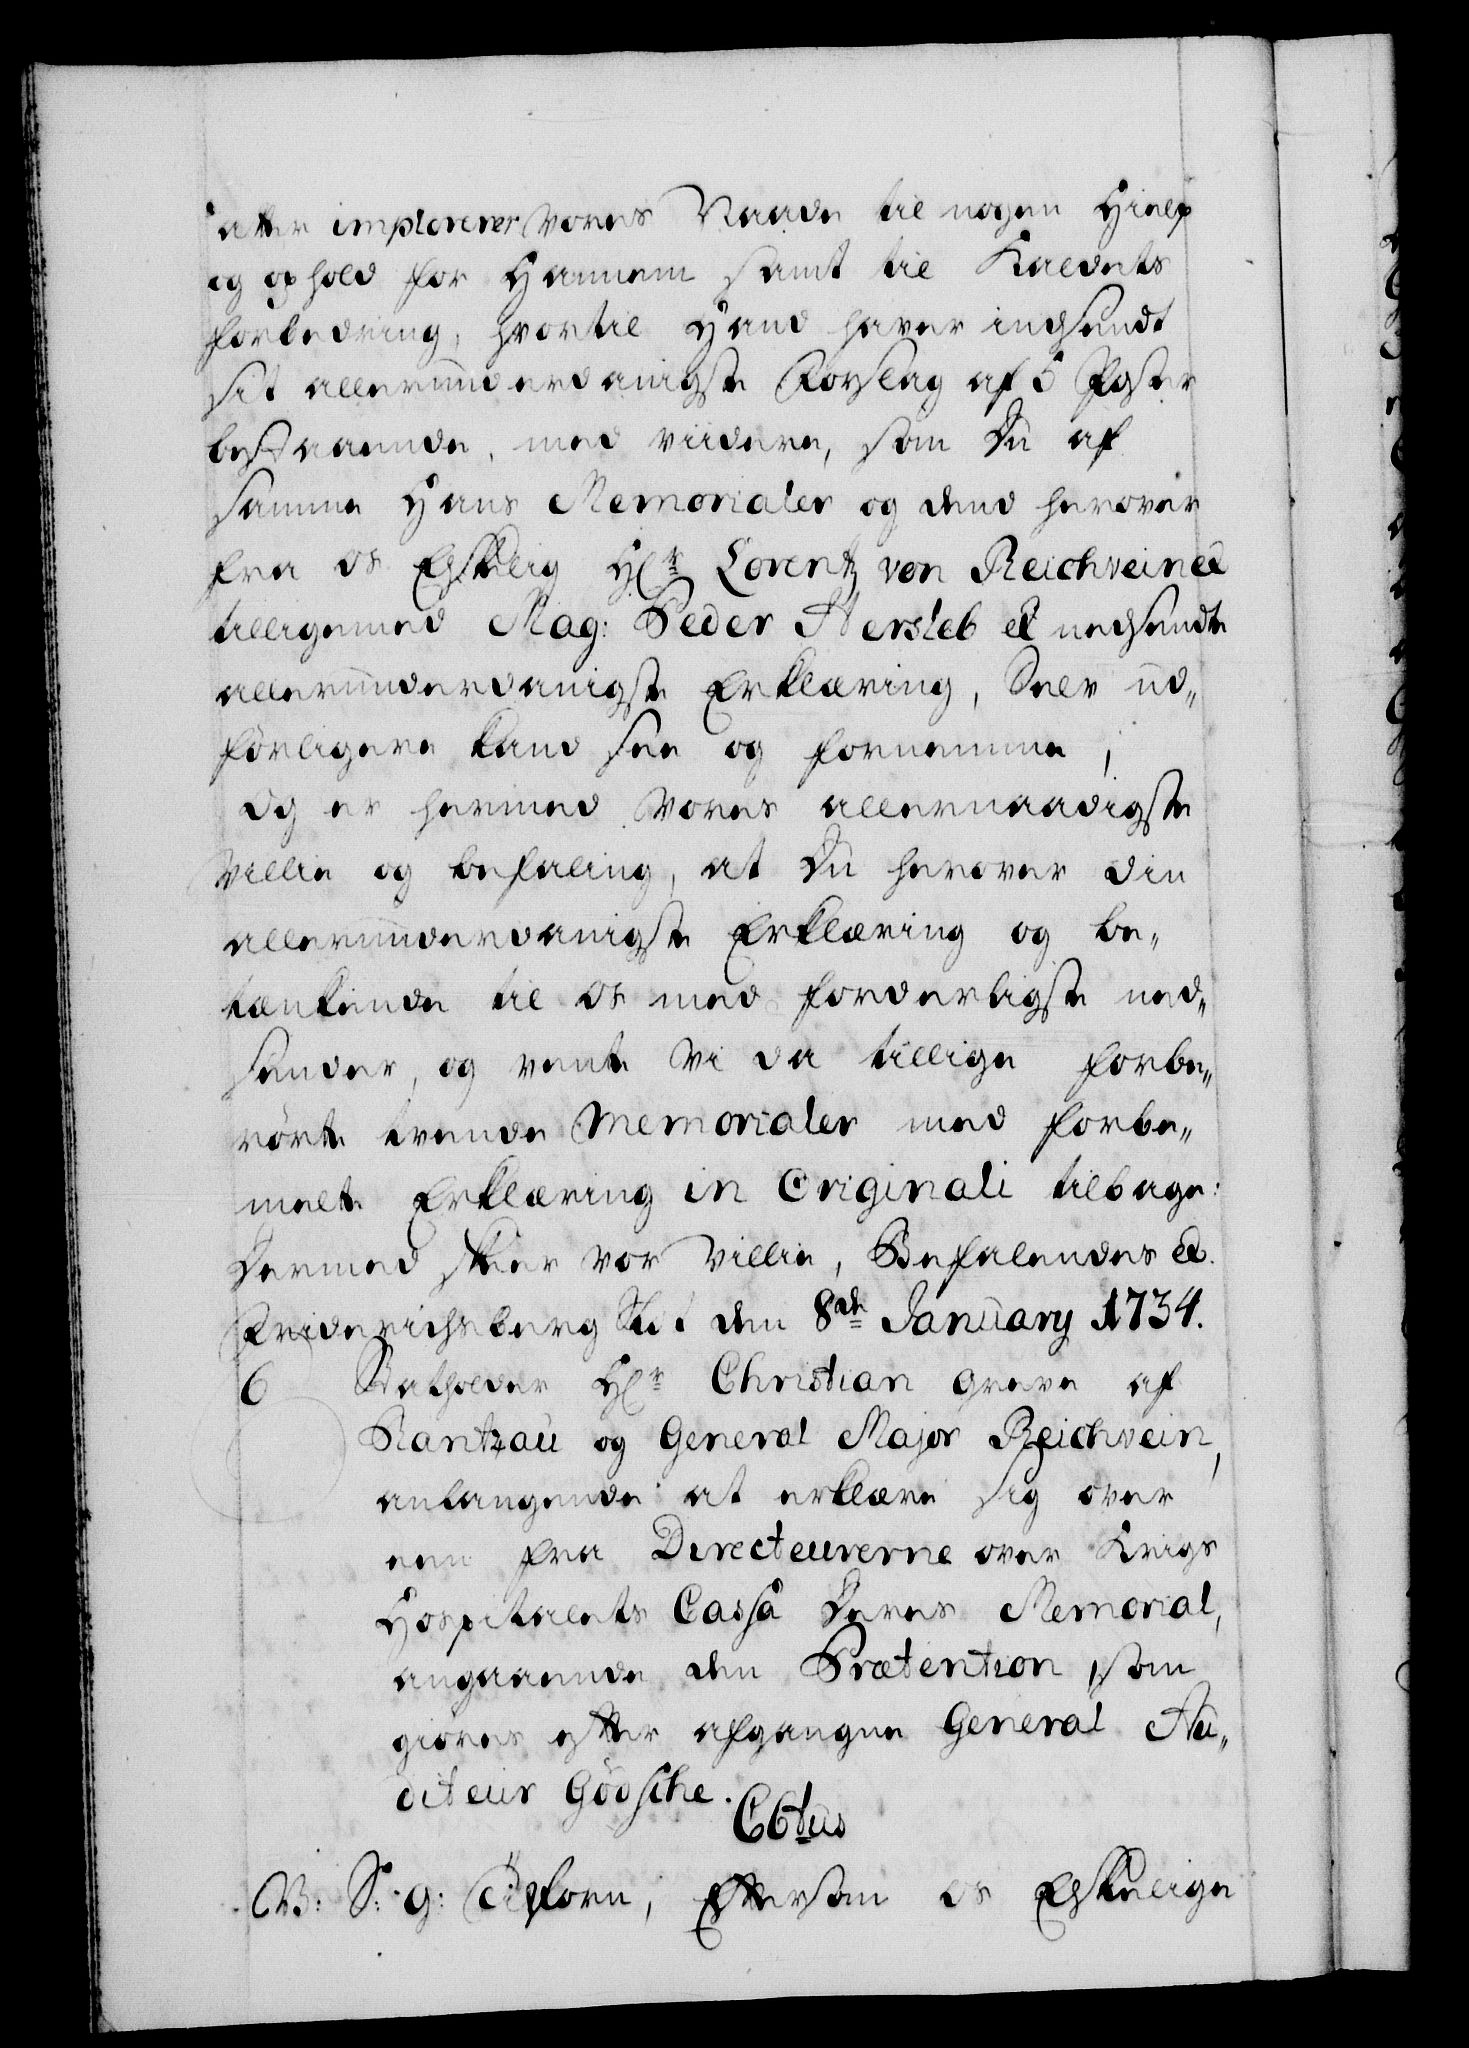 atter implorerer Vores Naade til nogen Hielp
og ophold for Hannem samt til Kaldets
forbedring, hvortil Hand haver indsendt
sit allerunderdanigste Forslag af 5 Poster
bestaaende, med viidere, som Du af
samme Hans Memorialer og dend herover
fra os Elskelig Hr Lorentz von Reichvein &
tilligemed Mag: Peder Hersleb & nedsendte
allerunderdanigste Erklæring, Selv ud„
førligere kand see og fornemme,
Og er hermed Vores allernaadigste
Villie og befaling, at Du herover din
allerunderdanigste Erklæring og be„
tænkende til Os med forderligste ned„
sender, og vente Vi da tillige forbe„
rørte tvende Memorialer med forbe„
melte Erklæring in Originali tilbage:
Dermed skeer vor Villie, Befalendes &.
Friderichsberg Slot den 8de January 1734.
6 Statholder Hr Christian Greve af
Rantzau og General Major Reichvein,
anlangende at erklære sig over
een fra Directeurerne over Krigs
Hospitalets Cassa Deres Memorial,
angaaende den Prætention, som
giøres efter afgangne General Au„
diteur Gödsche.
C6tus
V: S: G: Tilforn, Eftersom os Elskelige